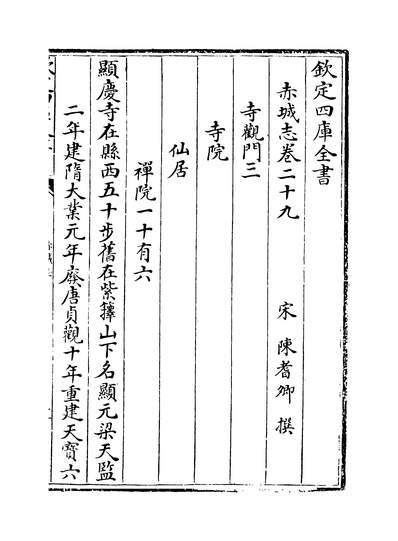 欽定四庫全書
赤城志卷二十九
宋 陳耆卿 撰
寺觀門三
寺院
仙居
禪院一十有六
顯慶寺在縣西五十步舊在紫籜山下名顯元梁天監
二年建隋大業元年廢唐貞觀十年重建天寳六